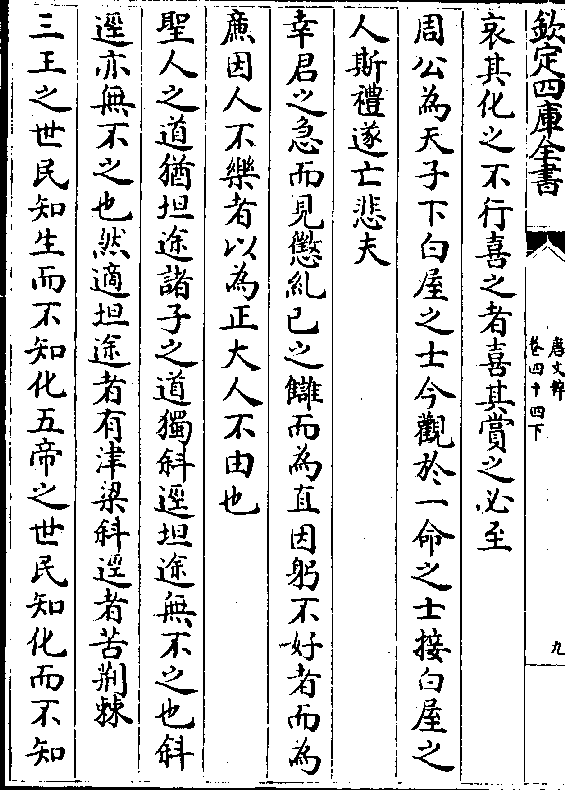 欽定四庫全書
唐文粹
卷四十四下
九
哀其化之不行喜之者喜其賞之必至
周公為天子下白屋之士今觀於一命之士接白屋之
人斯禮遂亡悲夫
幸君之急而見懲糺已之讎而為直因躬不好者而為
廉因人不樂者以為正大人不由也
聖人之道猶坦途諸子之道獨斜逕坦途無不之也斜
逕亦無不之也然適坦途者有津梁斜逕者苦荆棘
三王之世民知生而不知化五帝之世民知化而不知